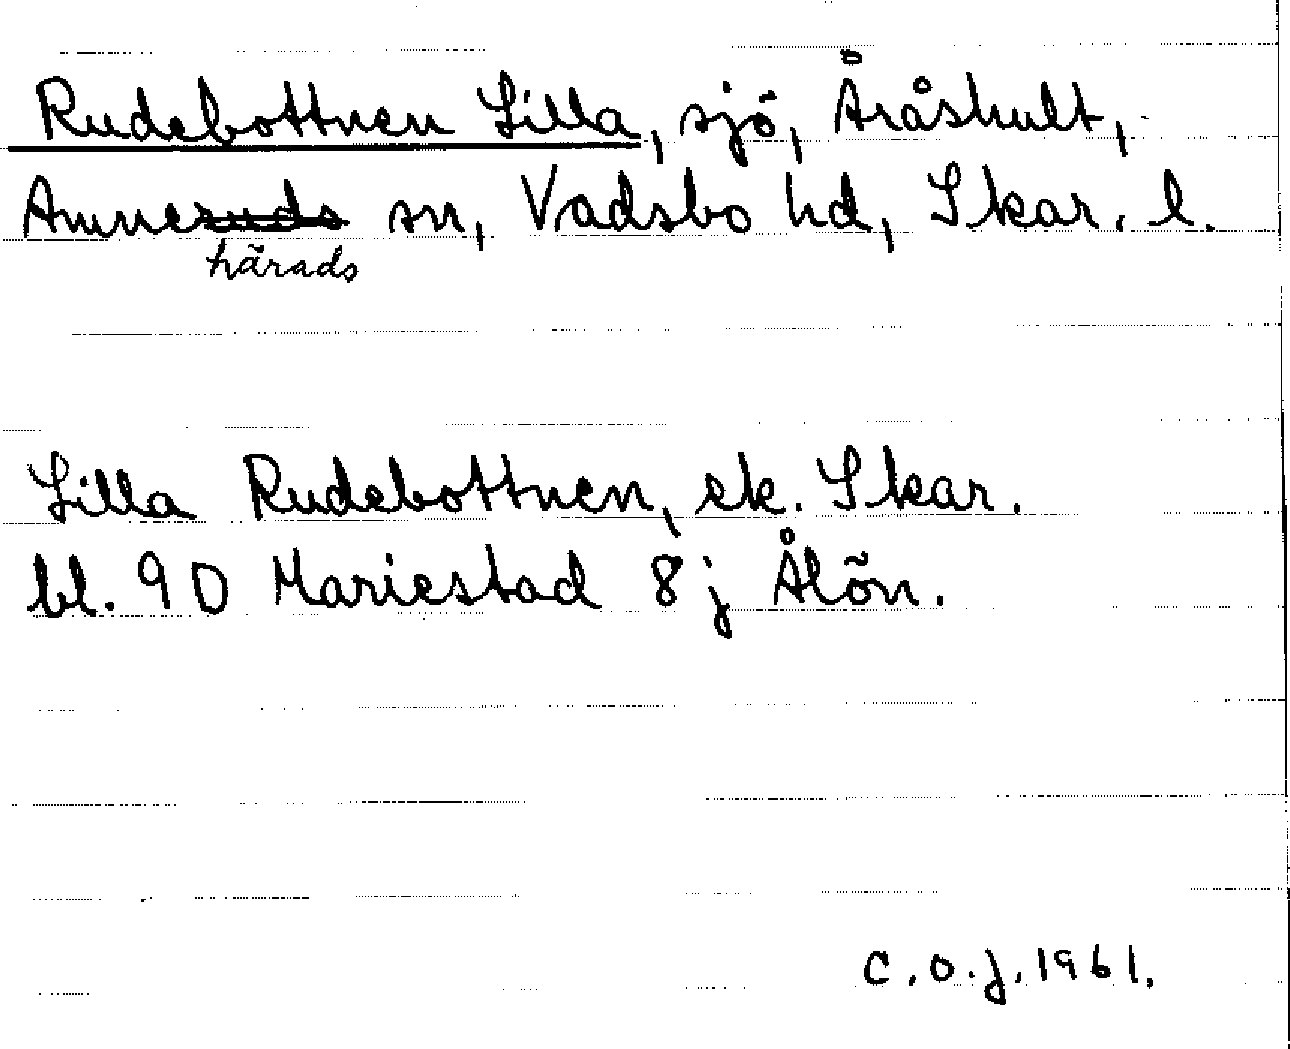 Rudebottnen Lilla, sjö, Åråshult,
Amneruds sn, Vadsbo hd, Skar. l.
härads
Lilla Rudebottnen, ek. Skar.
bl. 90 Mariestad 8 j Ålön.
C.O.J. 1961.